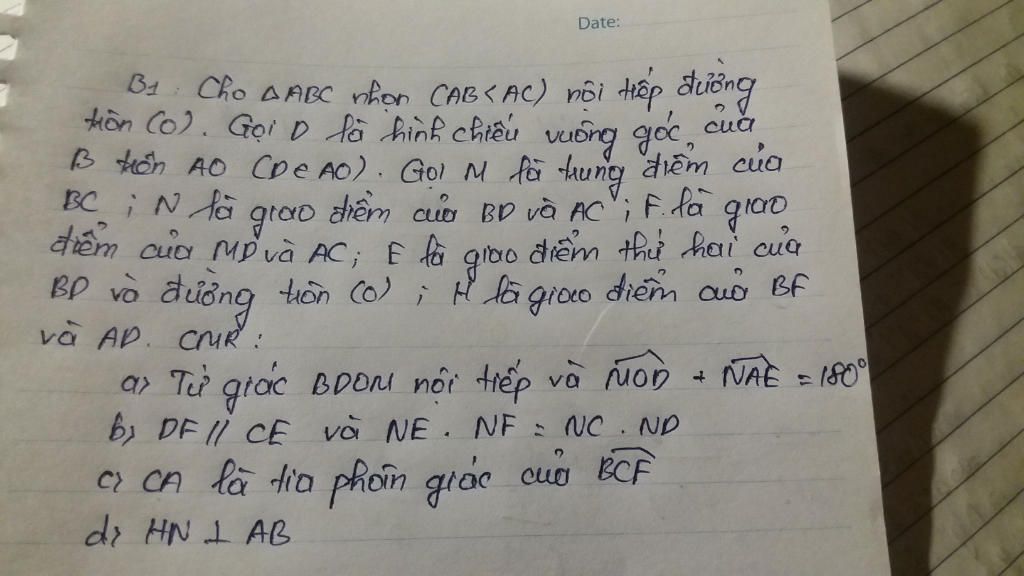 Date:
B1. Cho △ABC nhọn (AB<AC) nội tiếp đường
tròn (O). Gọi D là hình chiếu vuông góc của
B trên AO (D∈AO). Gọi M là trung điểm của
BC ; N là giao điểm của BD và AC ; F là giao
điểm của MD và AC ; E là giao điểm thứ hai của
BD và đường tròn (O) ; H là giao điểm của BF
và AD. CMR :
a) Tứ giác BDOM nội tiếp và \widehat{MOD} + \widehat{NAE} = 180°
b) DF // CE và NE . NF = NC . ND
c) CA là tia phân giác của \widehat{BCF}
d) HN ⊥ AB